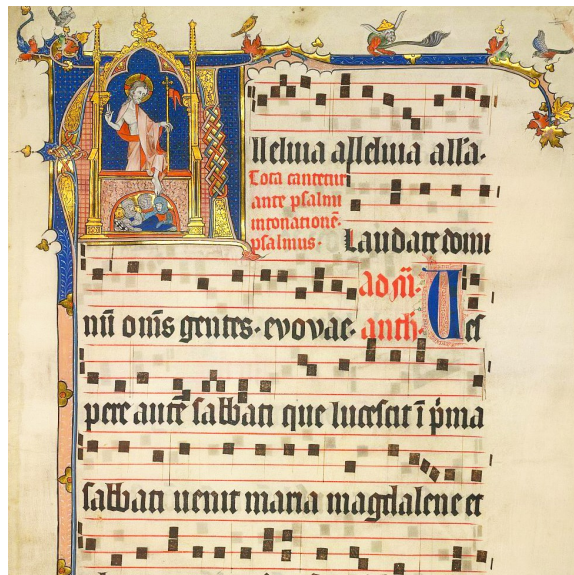 lleluia alleluia alla.
Tota cantetur
ante psalmi
intonatione.
psalmus.
Laudate domi
nū om̄s gentes. evovae. ad m̄. anth. Ues
pere autē sabbati que lucescit ī p̄ma
sabbati uenit maria magdalene et